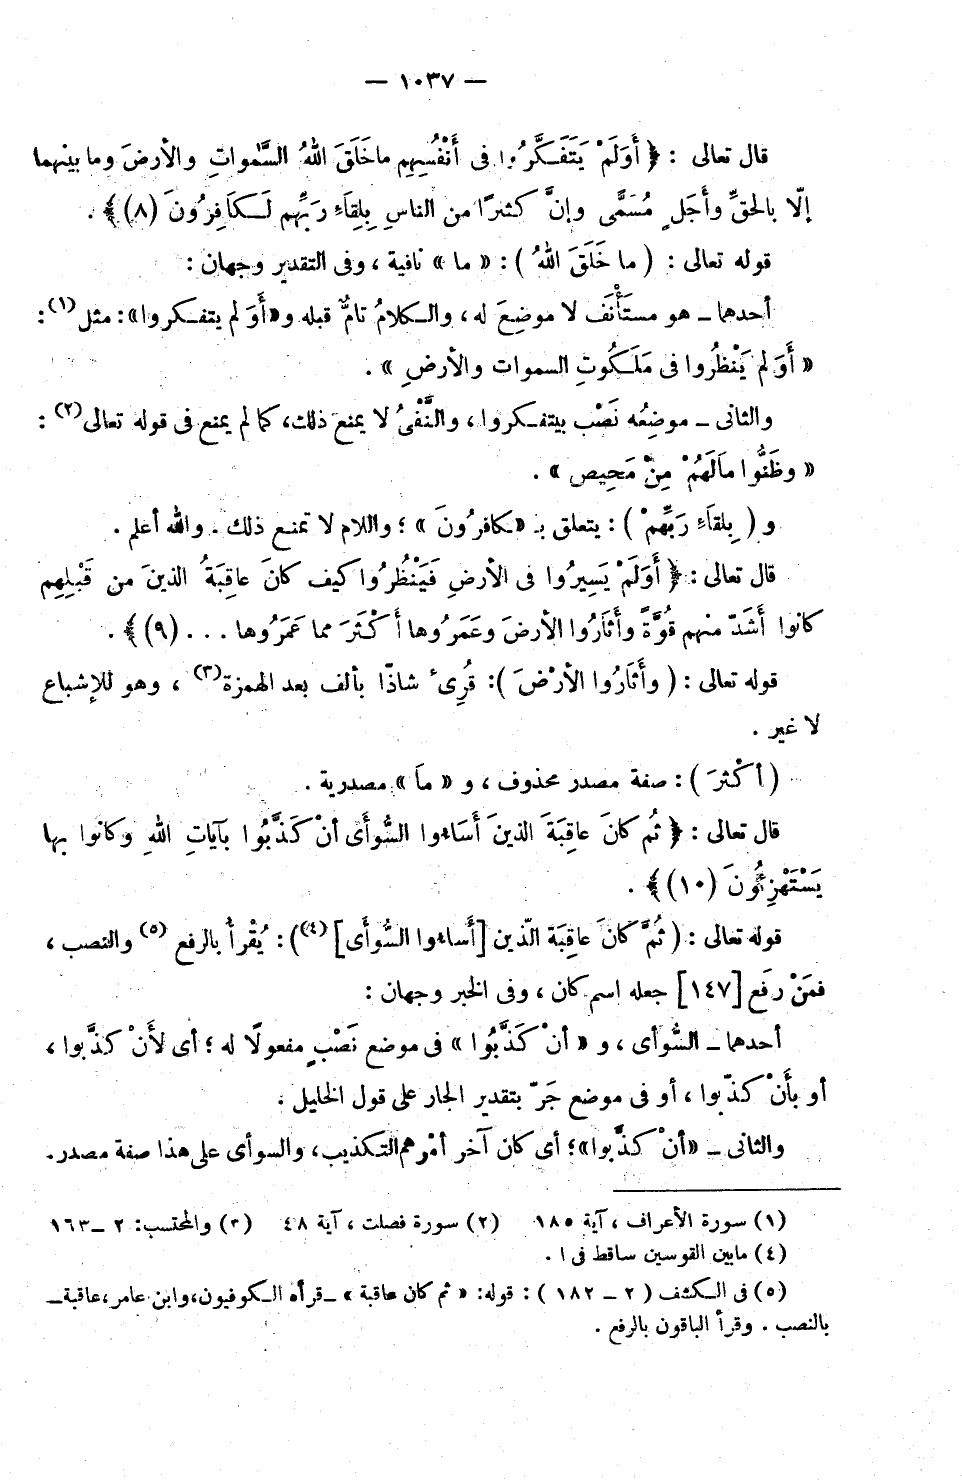 — ١٠٣٧ —
قال تعالى : ﴿ أَوَلَمْ يَتَفَكَّرُوا فى أَنْفُسِهِم ماخَلَقَ اللهُ السَّمواتِ والأرضَ وما بينهما
إلّا بالحقِّ وأَجَلٍ مُسَمًّى وإنَّ كثيرًا من الناسِ بِلِقَاءِ رَبِّهِم لَكَافِرُونَ (٨)﴾ .
قوله تعالى : ( ما خَلَقَ اللهُ ) : « ما » نافية ، وفى التقدير وجهان :
أحدهما ـ هو مستَأْنَف لا موضِعَ له ، والكلامُ تامٌّ قبله و«أَوَ لم يتفكروا»: مثل(١):
« أَوَ لم يَنْظُروا فى مَلَكُوتِ السموات والأرضِ » .
والثانى ـ موضِعُه نَصْب بيتفكروا ، والنَّفْىُ لا يمنع ذلك، كما لم يمنع فى قوله تعالى(٢) :
« وظَنُّوا مالَهُمْ مِنْ مَحِيص » .
و ( بِلِقَاءِ رَبِّهِمْ ) : يتعلق بـ «كافرُونَ » ؛ واللام لا تمنع ذلك . والله أعلم .
قال تعالى : ﴿ أَوَلَمْ يَسِيرُوا فى الأرضِ فَيَنْظُرُوا كيف كانَ عاقِبَةُ الذينَ من قَبْلِهِم
كانوا أَشَدّ منهم قُوَّةً وأَثَارُوا الأرضَ وعَمَرُوها أَكْثَرَ مما عَمَرُوها . . . (٩)﴾ .
قوله تعالى : ( وأَثَارُوا الأَرْضَ ): قُرِىء شاذّا بألف بعد الهمزة(٣) ، وهو للإشباع
لا غير .
( أكْثَرَ ) : صفة مصدر محذوف ، و « ما » مصدرية .
قال تعالى : ﴿ ثُم كانَ عاقِبَةَ الذينَ أَسَاءوا السُّوأَى أنْ كَذَّبُوا بآياتِ اللهِ وكانوا بها
يَسْتَهْزِئُونَ (١٠)﴾ .
قوله تعالى : ( ثُمَّ كانَ عاقِبَة الّذين [أَساءوا السُّوأَى](٤)) : يُقْرأ بالرفع (٥) والنصب ،
فمَنْ رفَع [١٤٧] جعله اسم كان ، وفى الخبر وجهان :
أحدهما ـ السُّوأى ، و « أنْ كَذَّبُوا » فى موضع نَصْبٍ مفعولًا له ؛ أى لأَنْ كذَّبوا ،
أو بأَنْ كذّبوا ، أو فى موضع جَرّ بتقدير الجار على قول الخليل .
والثانى ـ «أنْ كذَّبوا»؛ أى كان آخر أمْرِهم التكذيب، والسوأى على هذا صفة مصدر.
(١) سورة الأعراف ، آية ١٨٥ (٢) سورة فصلت ، آية ٤٨ (٣) والمحتسب: ٢ ـ ١٦٣
(٤) مابين القوسين ساقط فى ا .
(٥) فى الكشف ( ٢ ـ ١٨٢ ) : قوله: « ثم كان عاقبة » ـ قرأه الكوفيون، وابن عامر، عاقبة ـ
بالنصب . وقرأ الباقون بالرفع .